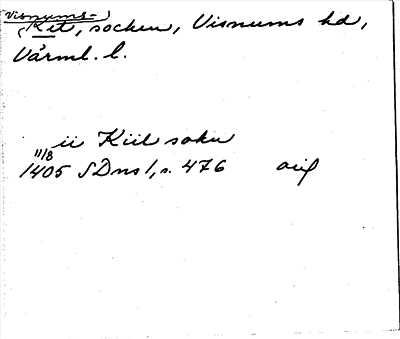 Visnums-
(Kil, socken, Visnums hd,
Värml. l.
ii Kiil sokn
11/8
1405 SDns 1, s. 476